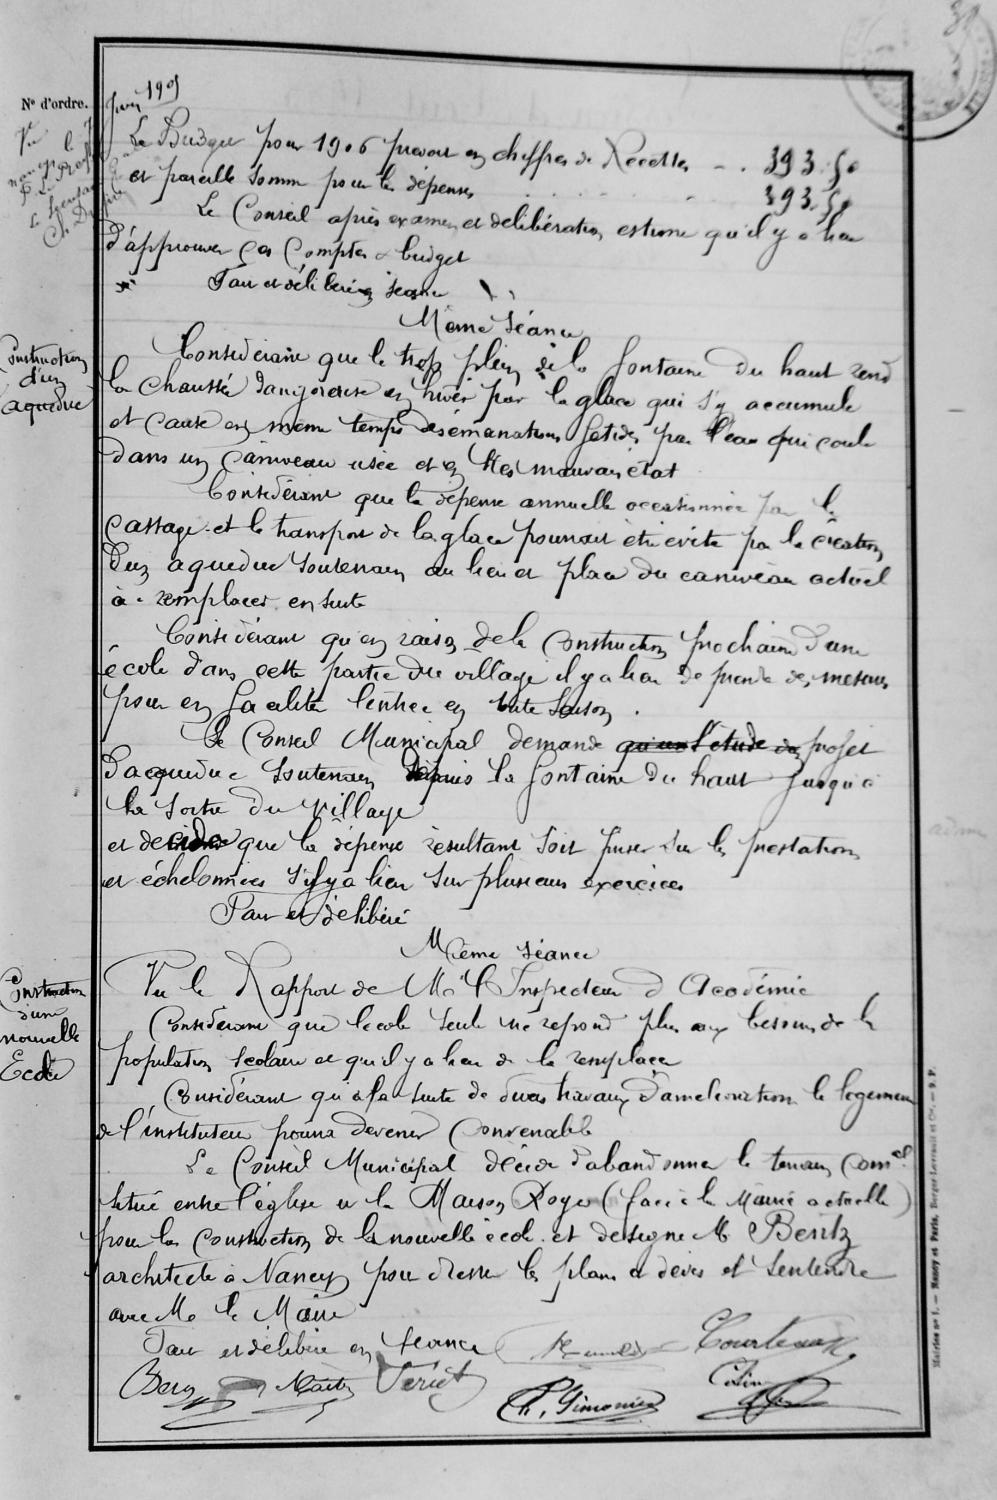 38
Juin 1905
N° d'ordre.
Vu
Nancy le
P. le Préfet
Le Budget pour 1906 prevoit en chiffres de Recettes - . 393.50
et pareille somme pour les dépenses 393.50
Le Conseil après examen et deliberation estime qu'il y a lieu
d'approuver ces Comptes & budget
Fait et délibéré en séance
Même séance
Construction
d'un
aqueduc
Considérant que le trop plein de la fontaine du haut rend
la chaussée dangereuse en hiver par la glace qui s'y accumule
et cause en même temps des émanations fetides par l'eau qui coule
dans un caniveau usée et en très mauvais état
Considérant que la dépense annuelle occasionnée par le
cassage et le transport de la glace pourrait être évité par la création
d'un aqueduc souterrain au lieu et place du caniveau actuel
à remplacer ensuite
Considérant qu'en raison de la construction prochaine d'une
école dans cette partie du village il y a lieu de prendre des mesures
pour en facilité l'entrée en toute saison.
Le Conseil Municipal demande qu'un l'étude du projet
d'aqueduc souterrain depuis la fontaine du haut jusqu'à
la sortie du village
et decide que la dépense résultant soit puiser sur les prestations
et échelonnées s'il y a lieu sur plusieurs exercices
Fait et délibéré
Même séance
Construction
d'une
nouvelle
Ecole
Vu le Rapport de Mr l'Inspecteur d'Académie
Considerant que l'ecole seule ne repond plus aux besoins de la
population scolaire et qu'il y a lieu de la remplacer
Considérant qu'à la suite de divers travaux d'amelioration le logement
de l'instituteur pourra devenir convenable
Le Conseil Municipal décide d'abandonner le terrain comel
situé entre l'église et la Maison Royer (face à la Mairie actuelle)
pour la construction de la nouvelle école et designe M Bentz
architecte à Nancy pour dresser les plans et devis et s'entendre
avec Mr le Maire
Fait et délibéré en séance
Courteaux
Bery Martin Vériet
Ch. Simonin
Colin
Mairies n° 1. — Nancy et Paris, Berger-Levrault et Cie. — 9 P.